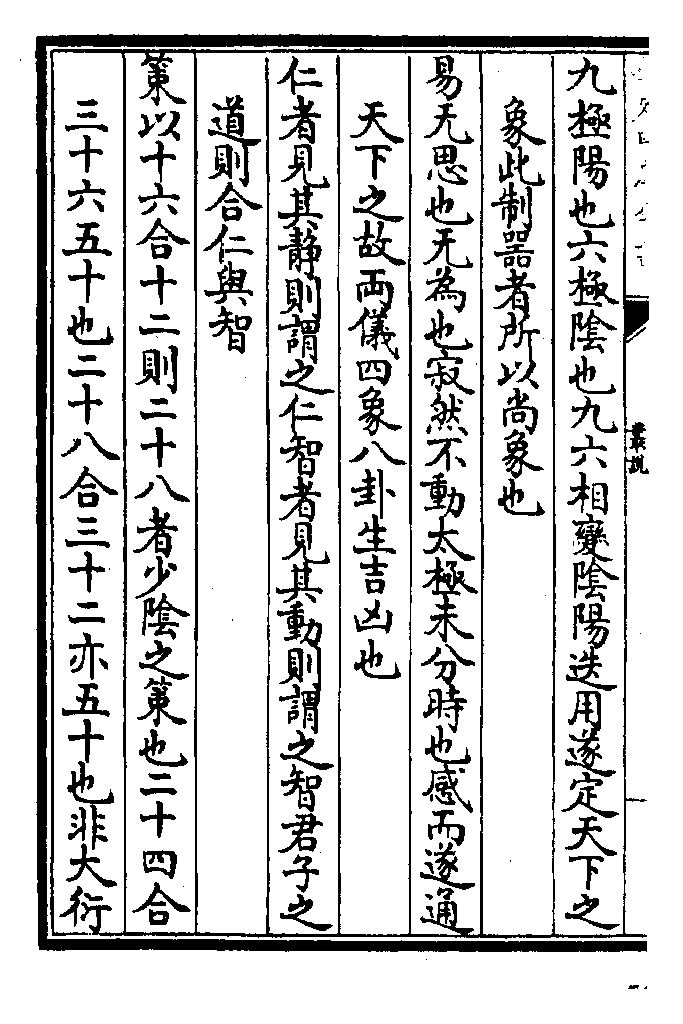 九極陽也六極陰也九六相變陰陽迭用遂定天下之
象此制器者所以尚象也
易无思也无為也寂然不動太極未分時也感而遂通
天下之故兩儀四象八卦生吉凶也
仁者見其静則謂之仁智者見其動則謂之智君子之
道則合仁與智
策以十六合十二則二十八者少陰之策也二十四合
三十六五十也二十八合三十二亦五十也非大衍
叢說